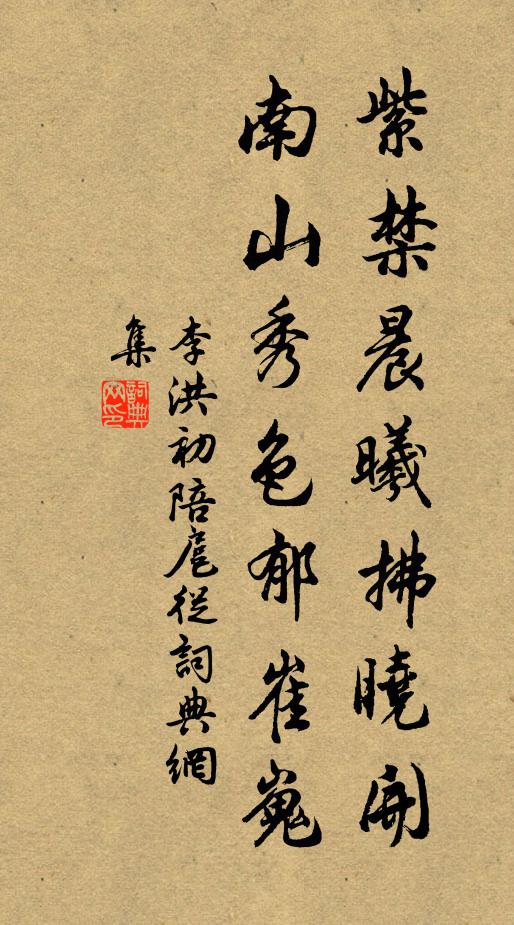 紫禁晨曦拂曉開
南山秀色郁崔嵬
李洪初陪扈從詞典網
集
詞典網印